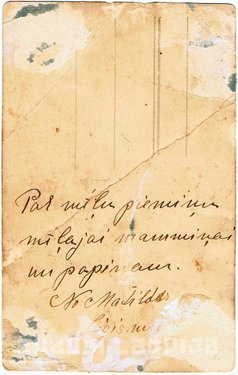 Par mīļu piemiņu
mīļajai mammiņai
un papiņam.
No Matildes